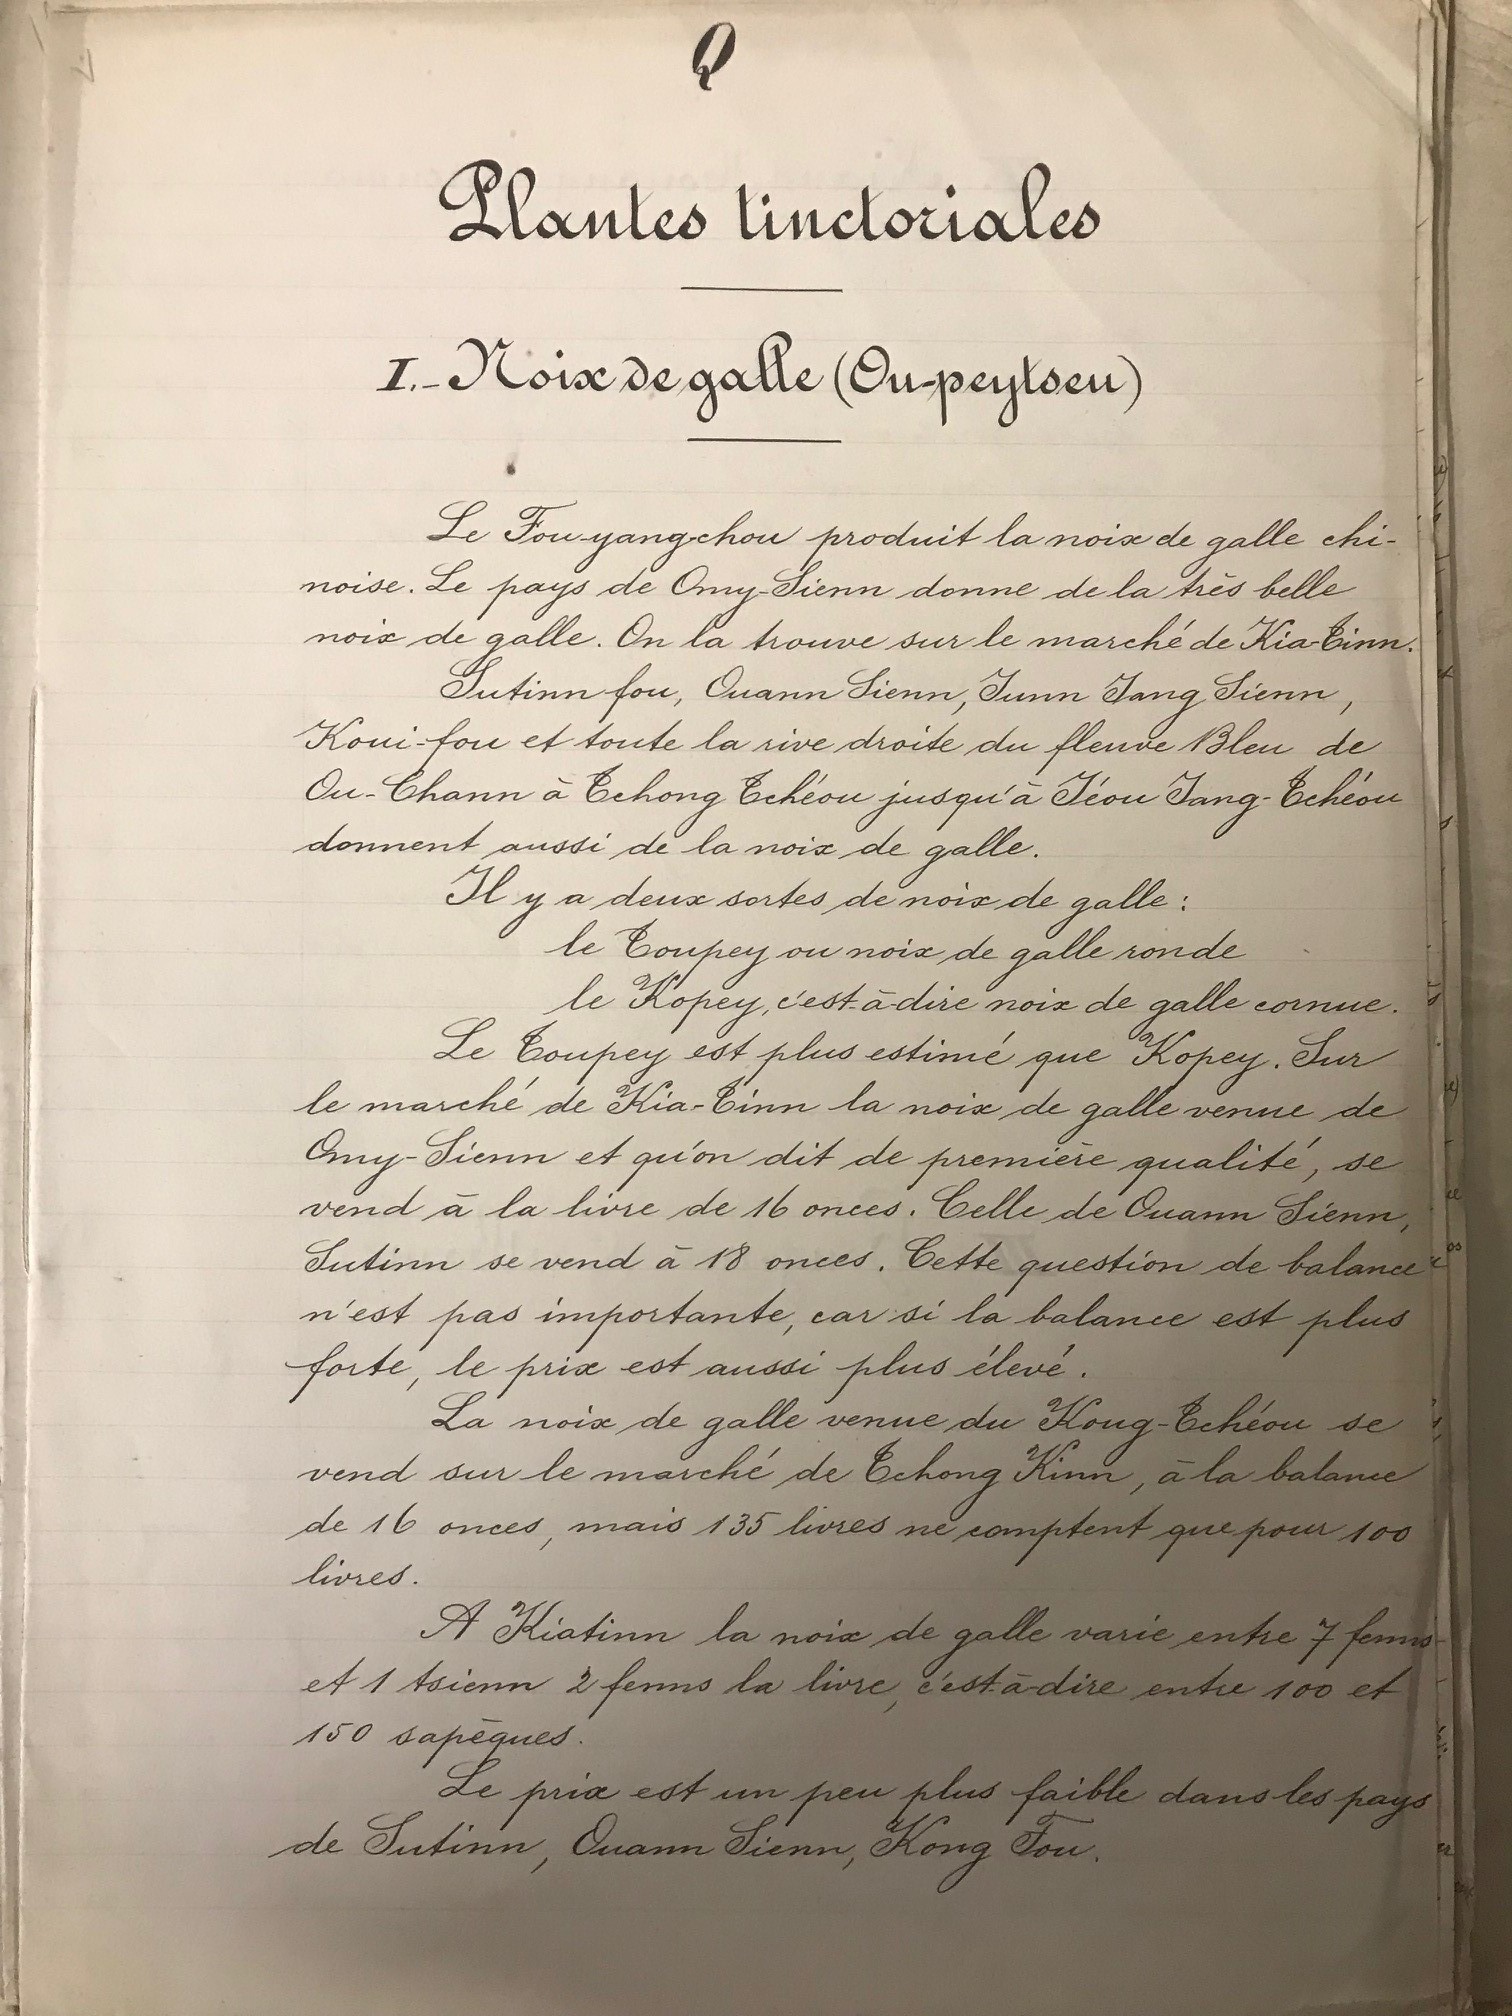 Q
Plantes tinctoriales
I.- Noix de galle (Ou-peytseu)
Le Fou-yang-chou produit la noix de galle chi-
noise. Le pays de Omy-Sienn donne de la très belle
noix de galle. On la trouve sur le marché de Kia-Tinn.
Sutinn fou, Ouann Sienn, Iunn Iang Sienn,
Koui-fou et toute la rive droite du fleuve Bleu de
Ou-Chann à Tchong Tchéou jusqu'à Iéou Iang-Tchéou
donnent aussi de la noix de galle.
Il y a deux sortes de noix de galle :
le Toupey ou noix de galle ronde
le Kopey, c'est-à-dire noix de galle cornue.
Le Toupey est plus estimé que Kopey. Sur
le marché de Kia-Tinn la noix de galle venue de
Omy-Sienn et qu'on dit de première qualité, se
vend à la livre de 16 onces. Celle de Ouann Sienn,
Sutinn se vend à 18 onces. Cette question de balance
n'est pas importante, car si la balance est plus
forte, le prix est aussi plus élevé.
La noix de galle venue du Koug-Tchéou se
vend sur le marché de Tchong Kinn, à la balance
de 16 onces, mais 135 livres ne comptent que pour 100
livres.
A Kiatinn la noix de galle varie entre 7 fenns
et 1 tsienn 2 fenns la livre, c'est-à-dire entre 100 et
150 sapèques.
Le prix est un peu plus faible dans les pays
de Sutinn, Ouann Sienn, Kong Fou.